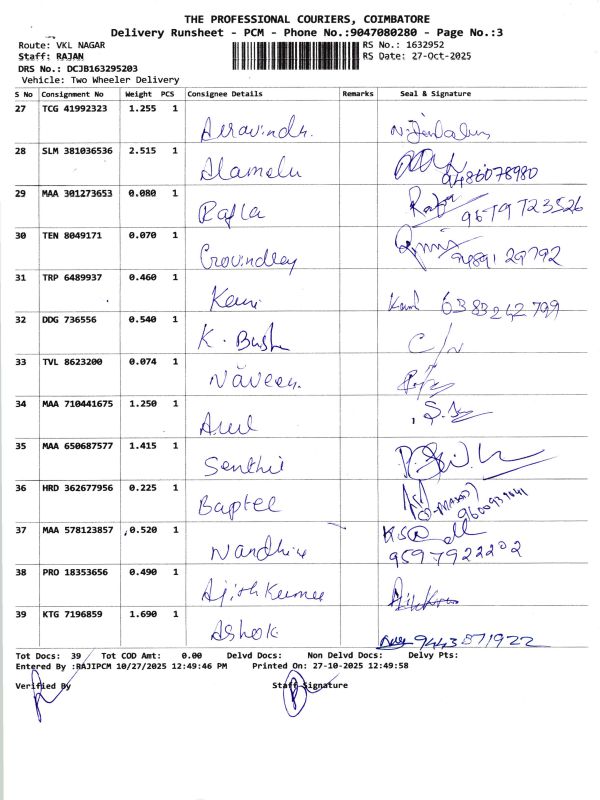 THE PROFESSIONAL COURIERS, COIMBATORE
Delivery Runsheet - PCM - Phone No.:9047080280 - Page No.:3
Route: VKL NAGAR RS No.: 1632952
Staff: RAJAN RS Date: 27-Oct-2025
DRS No.: DCJB163295203
Vehicle: Two Wheeler Delivery
S No Consignment No Weight PCS Consignee Details Remarks Seal & Signature
27 TCG 41992323 1.255 1
Aravindh.
28 SLM 381036536 2.515 1
Alamelu 9486078980
29 MAA 301273653 0.080 1
Rafla 9579723526
30 TEN 8049171 0.070 1
Govindley 9489129792
31 TRP 6489937 0.460 1
6383242799
32 DDG 736556 0.540 1
K. C/N
33 TVL 8623200 0.074 1
Naveen.
34 MAA 710441675 1.250 1
Arul
35 MAA 650687577 1.415 1
Senthil
36 HRD 362677956 0.225 1
Baptec
37 MAA 578123857 0.520 1
Nandhini 9597922202
38 PRO 18353656 0.490 1
Ajithkumar
39 KTG 7196859 1.690 1
Ashok 9443871922
Tot Docs: 39 Tot COD Amt: 0.00 Delvd Docs: Non Delvd Docs: Delvy Pts:
Entered By :RAJIPCM 10/27/2025 12:49:46 PM Printed On: 27-10-2025 12:49:58
Verified By Staff Signature